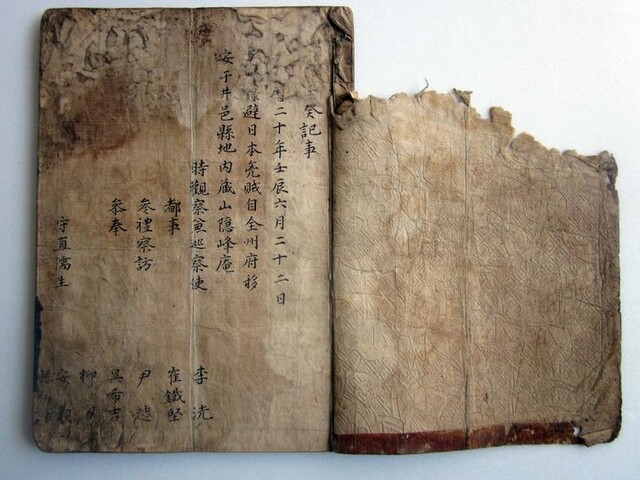 癸記事
曆二十年壬辰六月二十二日
避日本兇賊自全州府移
安于井邑縣地內藏山隱峰庵
時觀察兼巡察使 李洸
都事 崔鐵堅
叅禮察訪 尹
叅奉 吳希吉
柳
守直儒生 安
孫